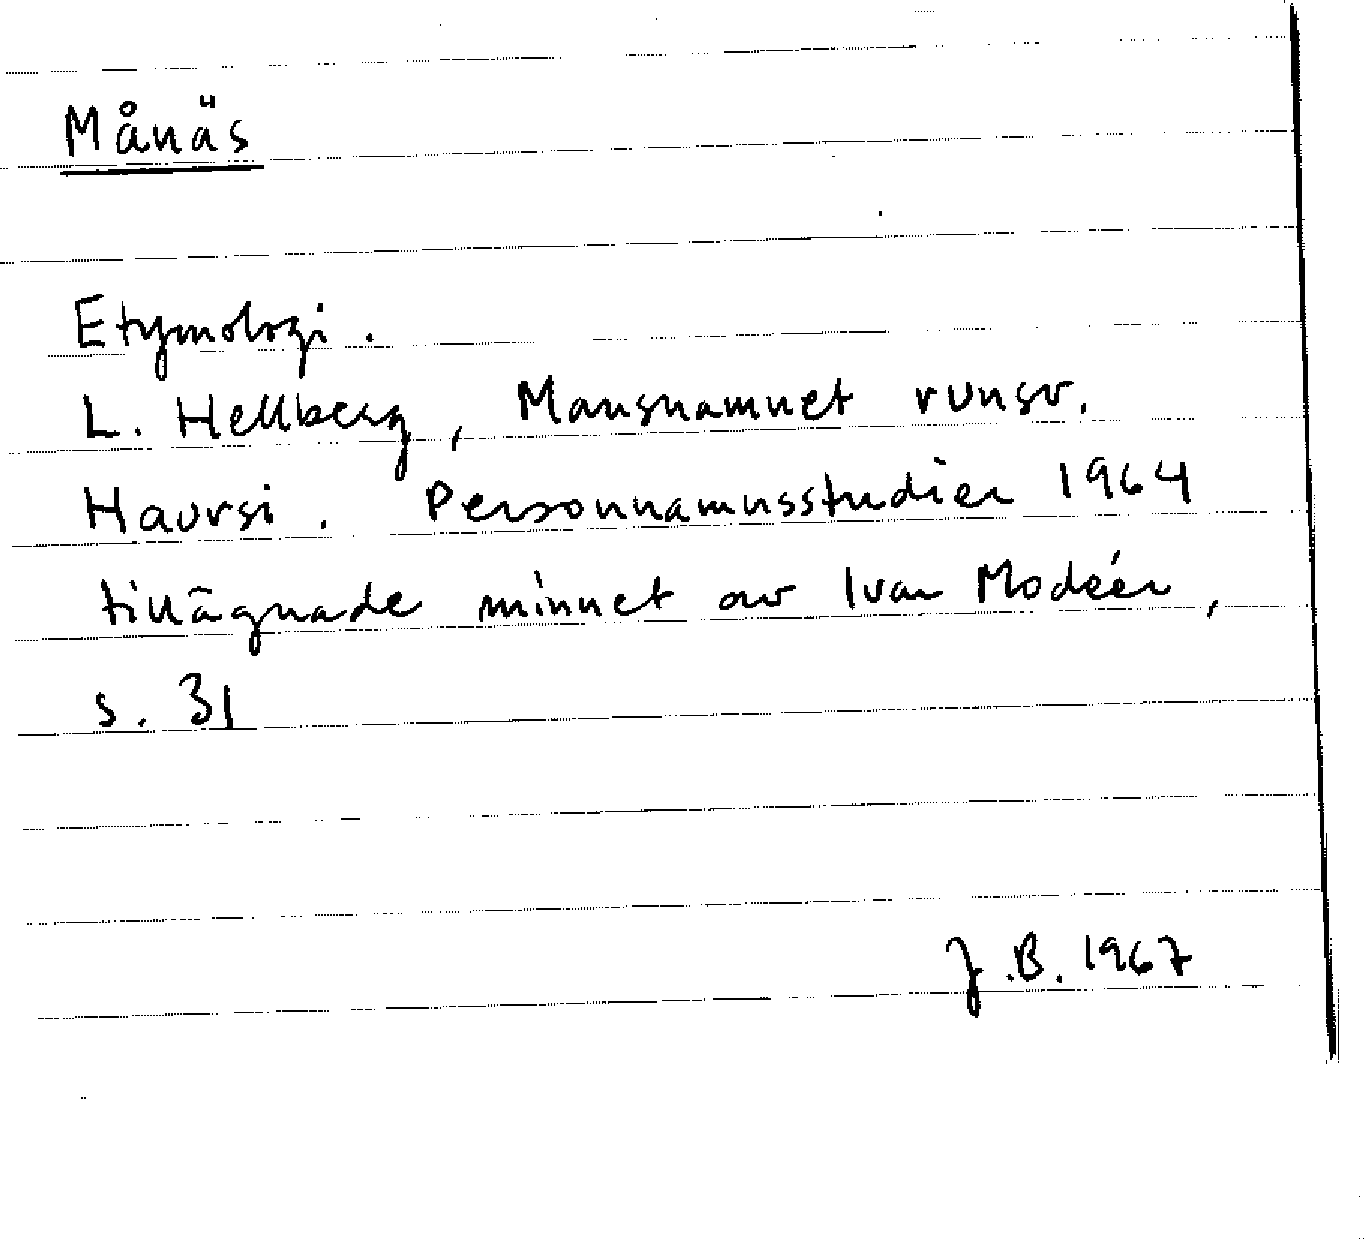 Månäs
Etymologi.
L. Hellberg, Mansnamnet runsv.
Haursi. Personnamnsstudier 1964
tillägnade minnet av Ivar Modéer,
s. 31
J.B. 1967